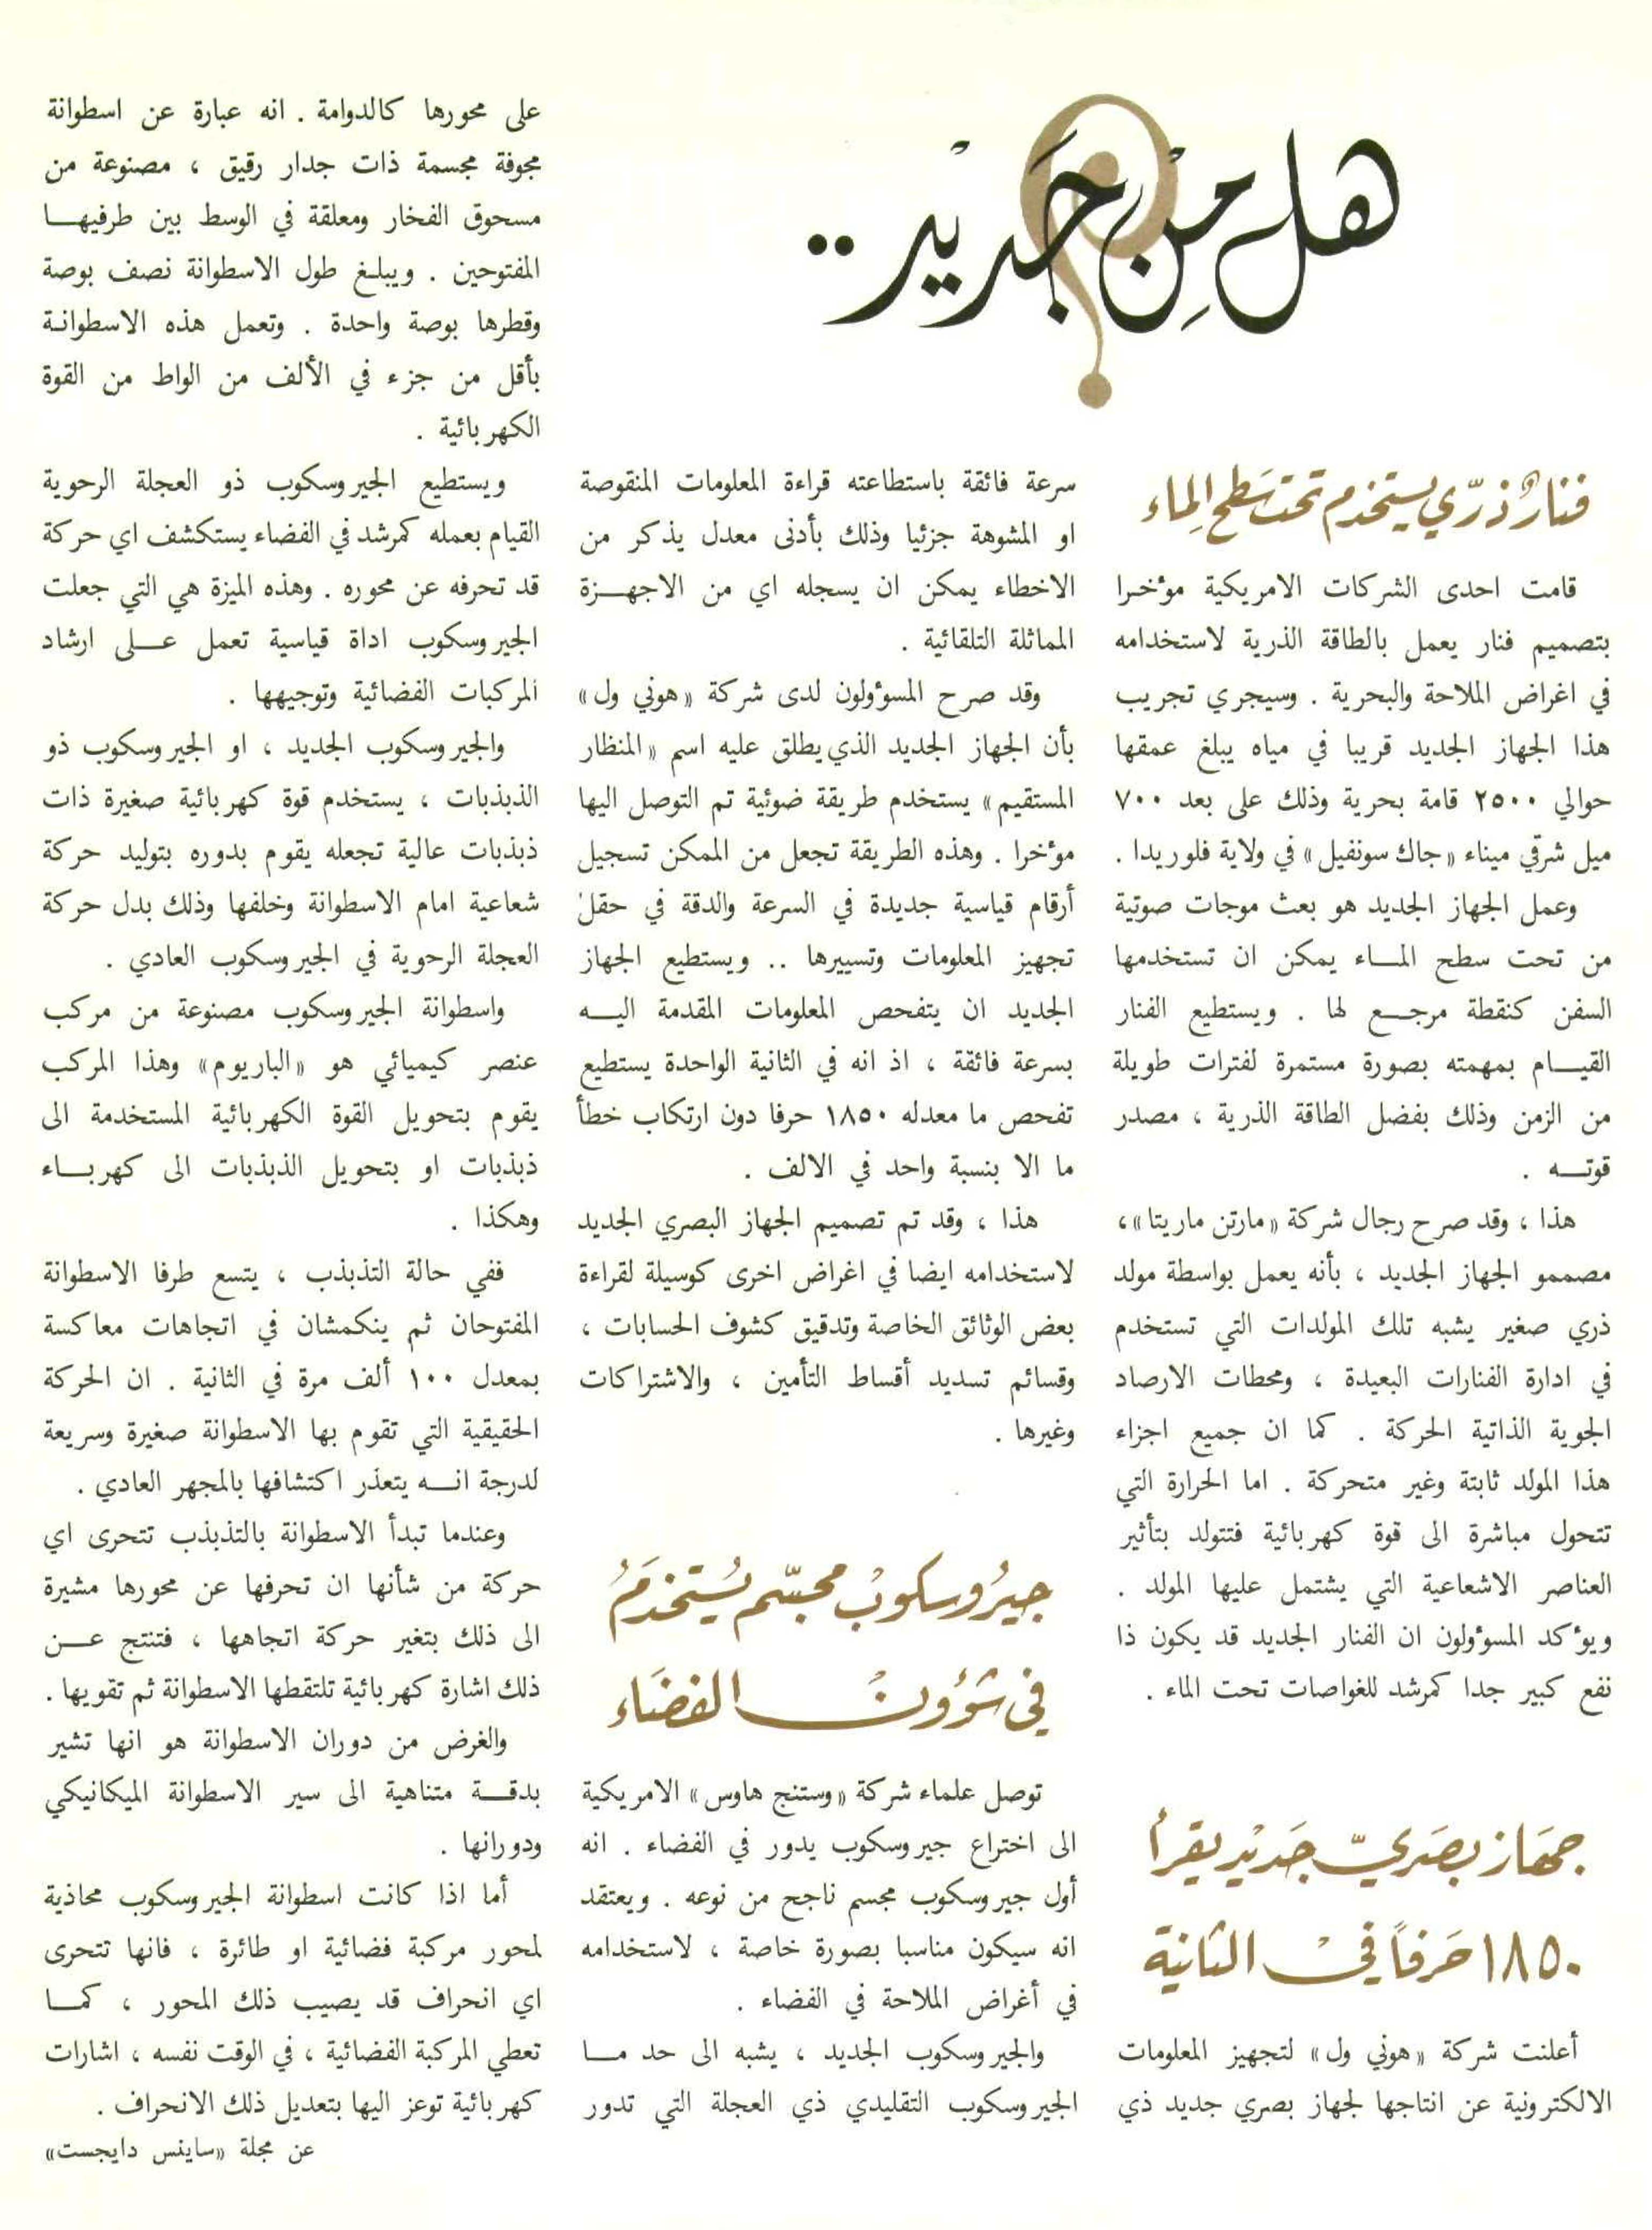 هل من جديد..
فنار ذرّي يستخدم تحت سطح الماء
قامت احدى الشركات الامريكية مؤخرا
بتصميم فنار يعمل بالطاقة الذرية لاستخدامه
في اغراض الملاحة والبحرية . وسيجري تجريب
هذا الجهاز الجديد قريبا في مياه يبلغ عمقها
حوالي ٢٥٠٠ قامة بحرية وذلك على بعد ٧٠٠
ميل شرقي ميناء «جاك سونفيل» في ولاية فلوريدا .
وعمل الجهاز الجديد هو بعث موجات صوتية
من تحت سطح المـاء يمكن ان تستخدمها
السفن كنقطة مرجـع لها . ويستطيع الفنار
القيـام بمهمته بصورة مستمرة لفترات طويلة
من الزمن وذلك بفضل الطاقة الذرية ، مصدر
قوتـه .
هذا ، وقد صرح رجال شركة «مارتن ماريتا»،
مصممو الجهاز الجديد ، بأنه يعمل بواسطة مولد
ذري صغير يشبه تلك المولدات التي تستخدم
في ادارة الفنارات البعيدة ، ومحطات الارصاد
الجوية الذاتية الحركة . كما ان جميع اجزاء
هذا المولد ثابتة وغير متحركة . اما الحرارة التي
تتحول مباشرة الى قوة كهربائية فتتولد بتأثير
العناصر الاشعاعية التي يشتمل عليها المولد .
ويؤكد المسؤولون ان الفنار الجديد قد يكون ذا
نفع كبير جدا كمرشد للغواصات تحت الماء .
جهاز بصريّ جديد يقرأ
١٨٥٠ حرفاً في الثانية
أعلنت شركة «هوني ول» لتجهيز المعلومات
الالكترونية عن انتاجها لجهاز بصري جديد ذي
سرعة فائقة باستطاعته قراءة المعلومات المنقوصة
او المشوهة جزئيا وذلك بأدنى معدل يذكر من
الاخطاء يمكن ان يسجله اي من الاجهـزة
المماثلة التلقائية .
وقد صرح المسؤولون لدى شركة «هوني ول»
بأن الجهاز الجديد الذي يطلق عليه اسم «المنظار
المستقيم» يستخدم طريقة ضوئية تم التوصل اليها
مؤخرا . وهذه الطريقة تجعل من الممكن تسجيل
أرقام قياسية جديدة في السرعة والدقة في حقل
تجهيز المعلومات وتسييرها .. ويستطيع الجهاز
الجديد ان يتفحص المعلومات المقدمة اليـه
بسرعة فائقة ، اذ انه في الثانية الواحدة يستطيع
تفحص ما معدله ١٨٥٠ حرفا دون ارتكاب خطأ
ما الا بنسبة واحد في الالف .
هذا ، وقد تم تصميم الجهاز البصري الجديد
لاستخدامه ايضا في اغراض اخرى كوسيلة لقراءة
بعض الوثائق الخاصة وتدقيق كشوف الحسابات ،
وقسائم تسديد أقساط التأمين ، والاشتراكات
وغيرها .
جيروسكوب مجسّم يُستخدمُ
في شؤون الفضاء
توصل علماء شركة «وستنج هاوس» الامريكية
الى اختراع جيروسكوب يدور في الفضاء . انه
أول جيروسكوب مجسم ناجح من نوعه . ويعتقد
انه سيكون مناسبا بصورة خاصة ، لاستخدامه
في أغراض الملاحة في الفضاء .
والجيروسكوب الجديد ، يشبه الى حد مـا
الجيروسكوب التقليدي ذي العجلة التي تدور
على محورها كالدوامة . انه عبارة عن اسطوانة
مجوفة مجسمة ذات جدار رقيق ، مصنوعة من
مسحوق الفخار ومعلقة في الوسط بين طرفيهـا
المفتوحين . ويبلغ طول الاسطوانة نصف بوصة
وقطرها بوصة واحدة . وتعمل هذه الاسطوانة
بأقل من جزء في الألف من الواط من القوة
الكهربائية .
ويستطيع الجيروسكوب ذو العجلة الرحوية
القيام بعمله كمرشد في الفضاء يستكشف اي حركة
قد تحرفه عن محوره . وهذه الميزة هي التي جعلت
الجيروسكوب اداة قياسية تعمل عـلى ارشاد
المركبات الفضائية وتوجيهها .
والجيروسكوب الجديد ، او الجيروسكوب ذو
الذبذبات ، يستخدم قوة كهربائية صغيرة ذات
ذبذبات عالية تجعله يقوم بدوره بتوليد حركة
شعاعية امام الاسطوانة وخلفها وذلك بدل حركة
العجلة الرحوية في الجيروسكوب العادي .
واسطوانة الجيروسكوب مصنوعة من مركب
عنصر كيميائي هو «الباريوم» وهذا المركب
يقوم بتحويل القوة الكهربائية المستخدمة الى
ذبذبات او بتحويل الذبذبات الى كهربـاء
وهكذا .
ففي حالة التذبذب ، يتسع طرفا الاسطوانة
المفتوحان ثم ينكمشان في اتجاهات معاكسة
بمعدل ١٠٠ ألف مرة في الثانية . ان الحركة
الحقيقية التي تقوم بها الاسطوانة صغيرة وسريعة
لدرجة انـه يتعذر اكتشافها بالمجهر العادي .
وعندما تبدأ الاسطوانة بالتذبذب تتحرى اي
حركة من شأنها ان تحرفها عن محورها مشيرة
الى ذلك بتغير حركة اتجاهها ، فتنتج عـن
ذلك اشارة كهربائية تلتقطها الاسطوانة ثم تقويها .
والغرض من دوران الاسطوانة هو انها تشير
بدقـة متناهية الى سير الاسطوانة الميكانيكي
ودورانها .
أما اذا كانت اسطوانة الجيروسكوب محاذية
لمحور مركبة فضائية او طائرة ، فانها تتحرى
اي انحراف قد يصيب ذلك المحور ، كمـا
تعطي المركبة الفضائية ، في الوقت نفسه ، اشارات
كهربائية توعز اليها بتعديل ذلك الانحراف .
عن مجلة «ساينس دايجست»